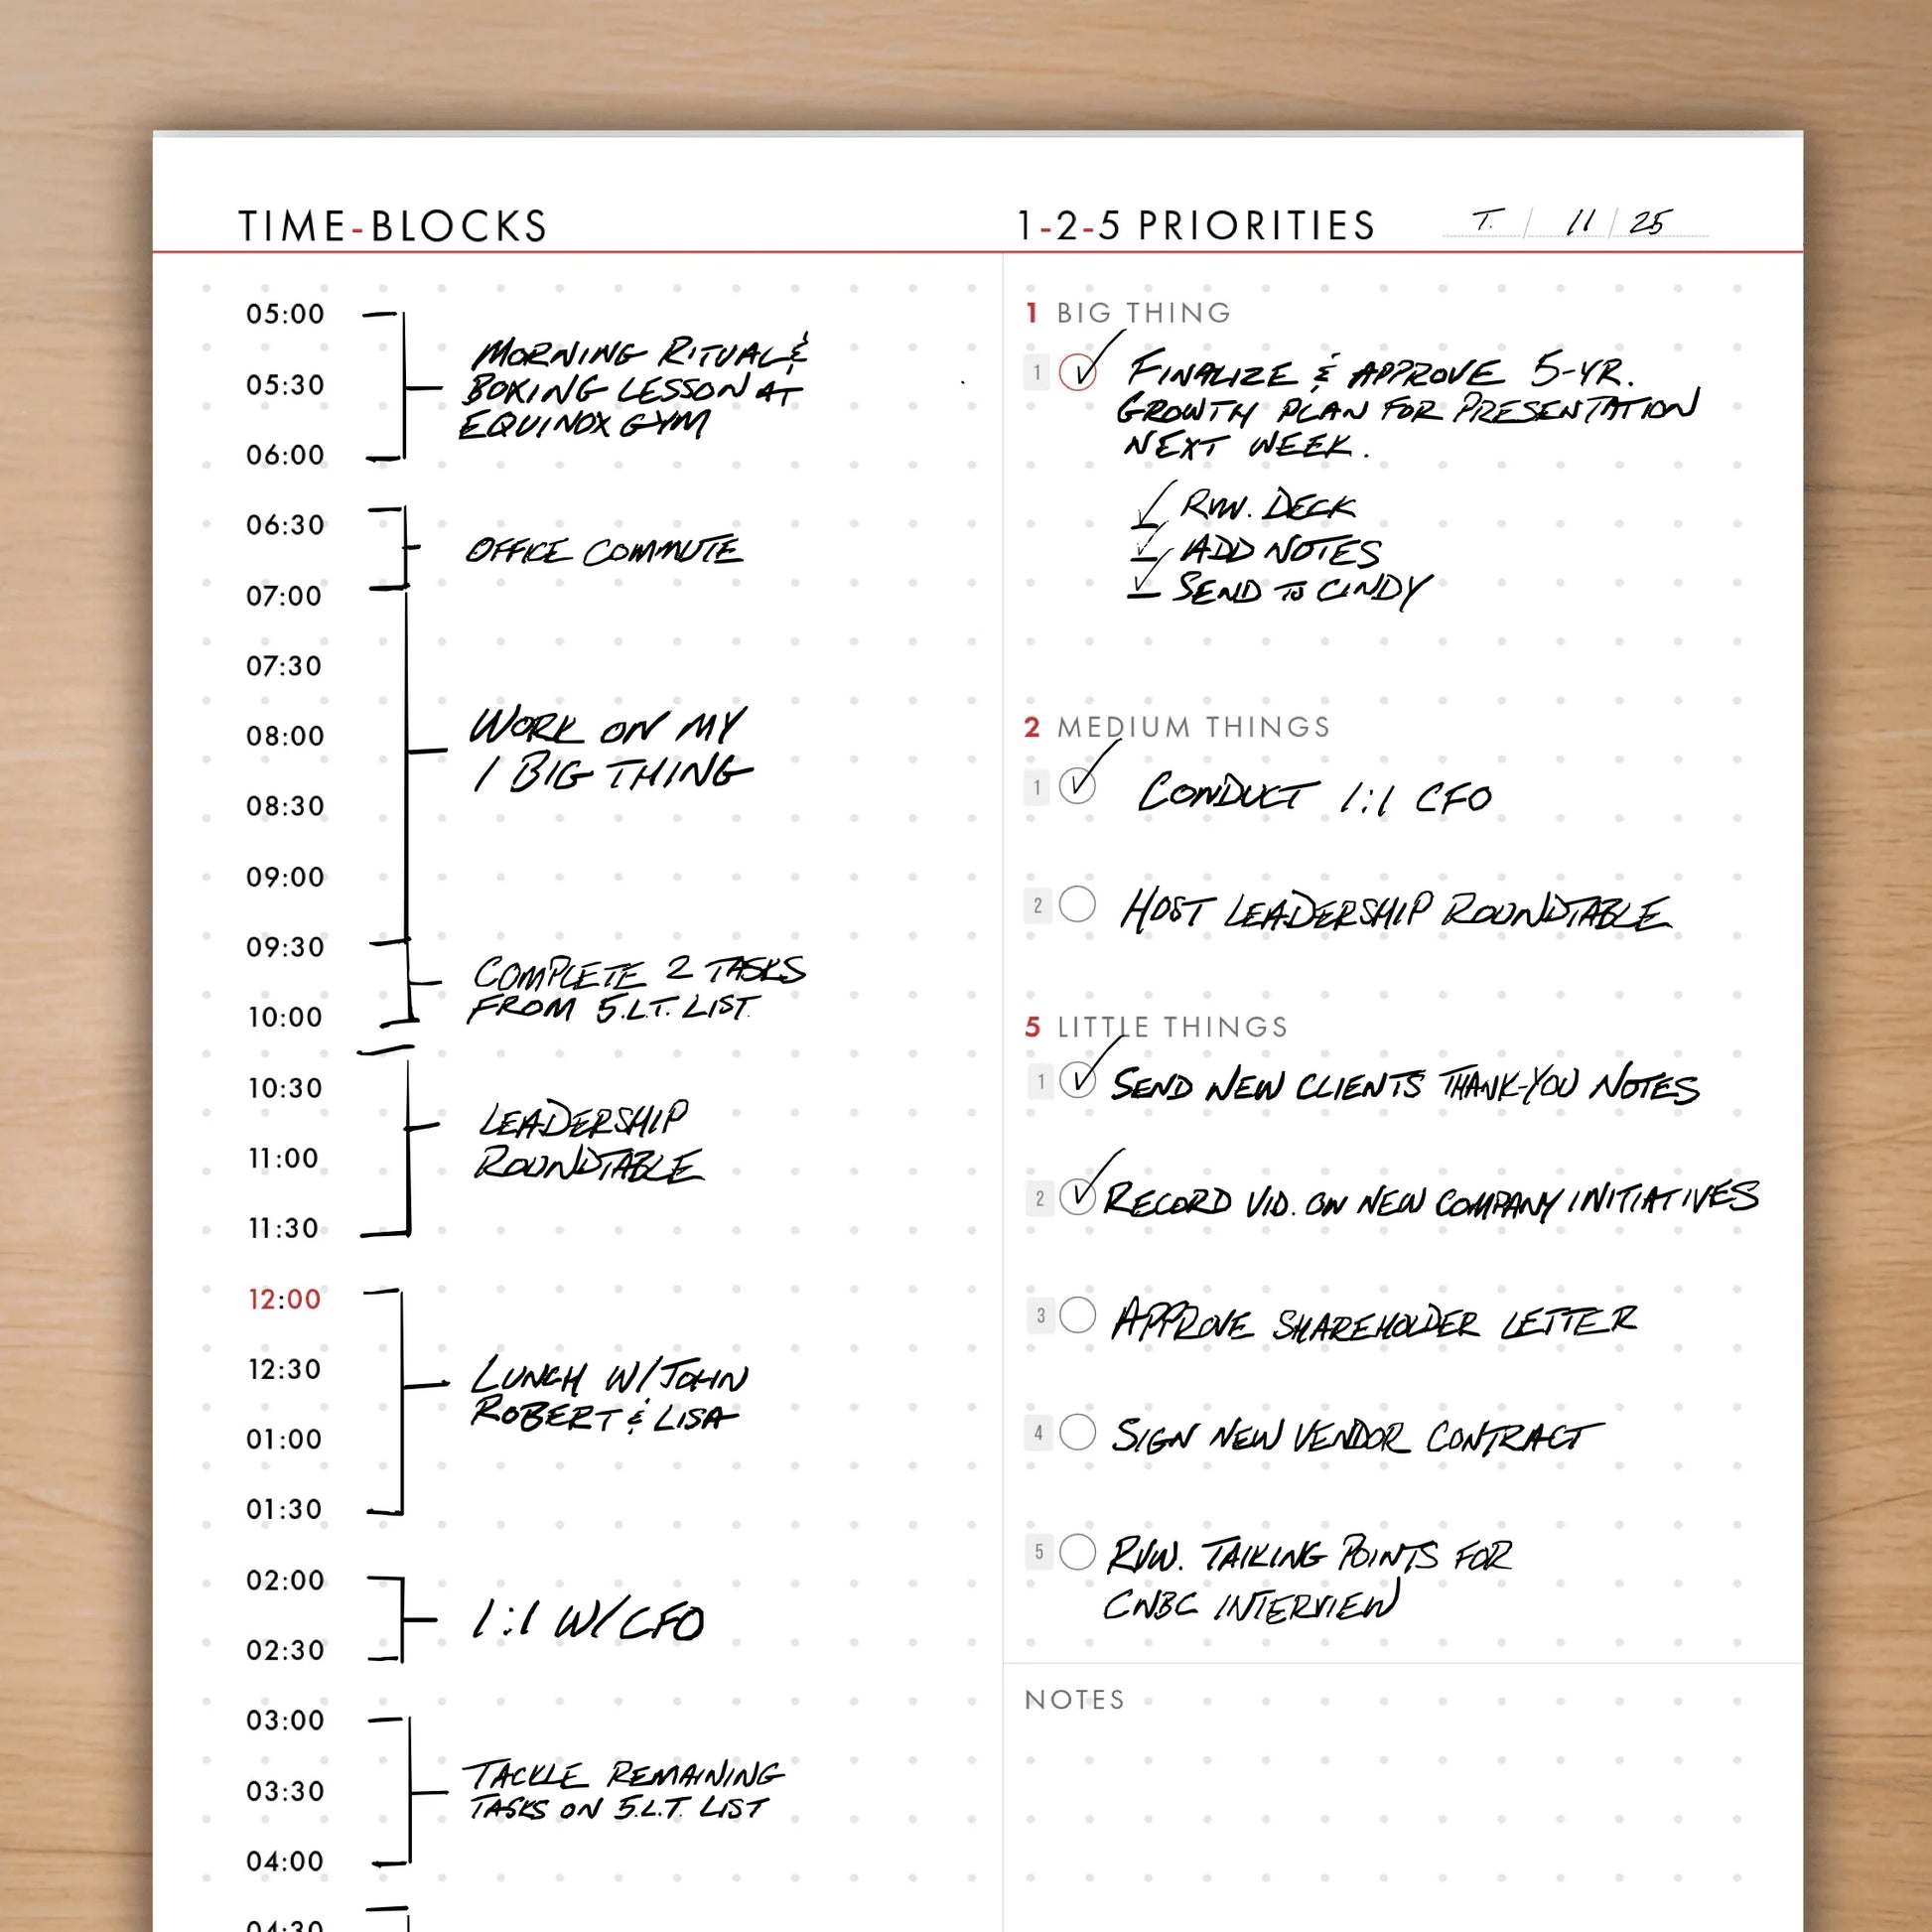 TIME-BLOCKS
05:00
05:30
06:00
MORNING RITUAL &
BOXING LESSON AT
EQUINOX GYM
06:30
07:00
OFFICE COMMUTE
07:30
08:00
08:30
09:00
09:30
WORK ON MY
1 BIG THING
10:00
COMPLETE 2 TASKS
FROM 5.L.T. LIST
10:30
11:00
11:30
LEADERSHIP
ROUNDTABLE
12:00
12:30
01:00
01:30
LUNCH W/JOHN
ROBERT & LISA
02:00
02:30
1:1 W/CFO
03:00
03:30
04:00
TACKLE REMAINING
TASKS ON 5.L.T. LIST
04:30
1-2-5 PRIORITIES T. / 11 / 25
1 BIG THING
1 FINALIZE & APPROVE 5-YR.
GROWTH PLAN FOR PRESENTATION
NEXT WEEK.
RVW. DECK
ADD NOTES
SEND TO CINDY
2 MEDIUM THINGS
1 CONDUCT 1:1 CFO
2 HOST LEADERSHIP ROUNDTABLE
5 LITTLE THINGS
1 SEND NEW CLIENTS THANK-YOU NOTES
2 RECORD VID. ON NEW COMPANY INITIATIVES
3 APPROVE SHAREHOLDER LETTER
4 SIGN NEW VENDOR CONTRACT
5 RVW. TALKING POINTS FOR
CNBC INTERVIEW
NOTES